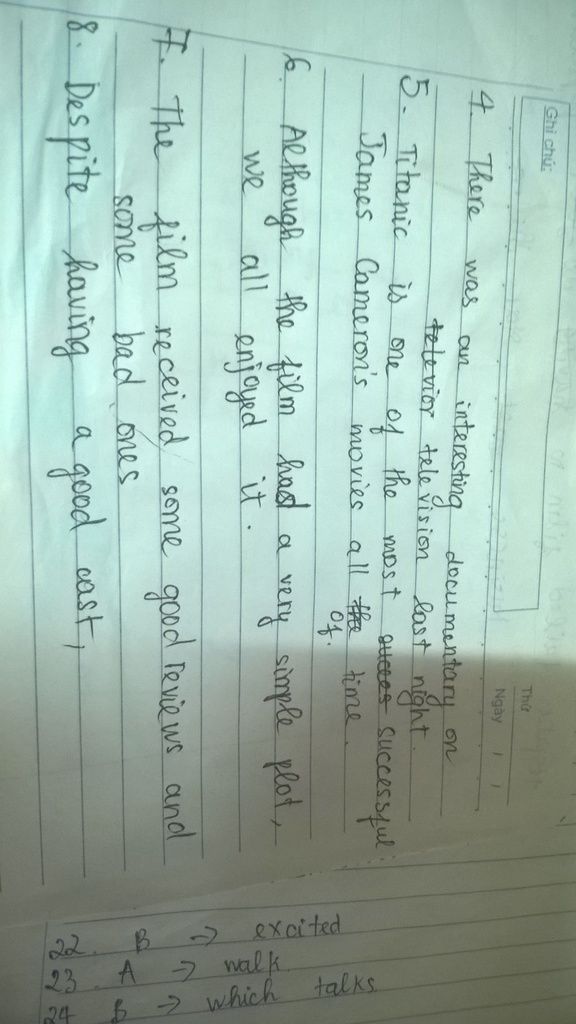 Ghi chú:
Thứ
Ngày / /
4. There was an interesting documentary on
televior television last night.
5. Titanic is one of the most succes successful
James Cameron's movies all the time.
of.
6. Although the film had a very simple plot,
we all enjoyed it.
7. The film received some good reviews and
some bad ones
8. Despite having a good cast,
22. B → excited
23. A → walk
24 B → which talks